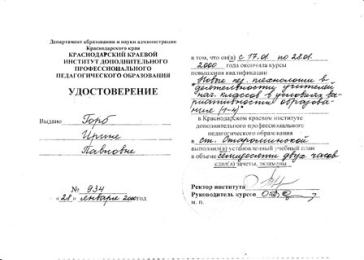 Департамент образования и науки администрации
Краснодарского края
КРАСНОДАРСКИЙ КРАЕВОЙ
ИНСТИТУТ ДОПОЛНИТЕЛЬНОГО
ПРОФЕССИОНАЛЬНОГО
ПЕДАГОГИЧЕСКОГО ОБРАЗОВАНИЯ
УДОСТОВЕРЕНИЕ
Выдано Горб
Ирине
Павловне
№ 934
«28» января 2000 год
в том, что он(а) с 17.01 по 28.01.
2000 года окончила курсы
повышения квалификации
Новые пед. технологии в
деятельности учителей
нач. классов в условиях ва-
риативности образова-
ния (1-4)
в Краснодарском краевом институте
дополнительного профессионального
педагогического образования
в ст. Старощербиновской
выполнил(а) установленный учебный план
в объеме семидесяти двух часов
сдал(а) зачеты, экзамены
Ректор института
Руководитель курсов
м.п.